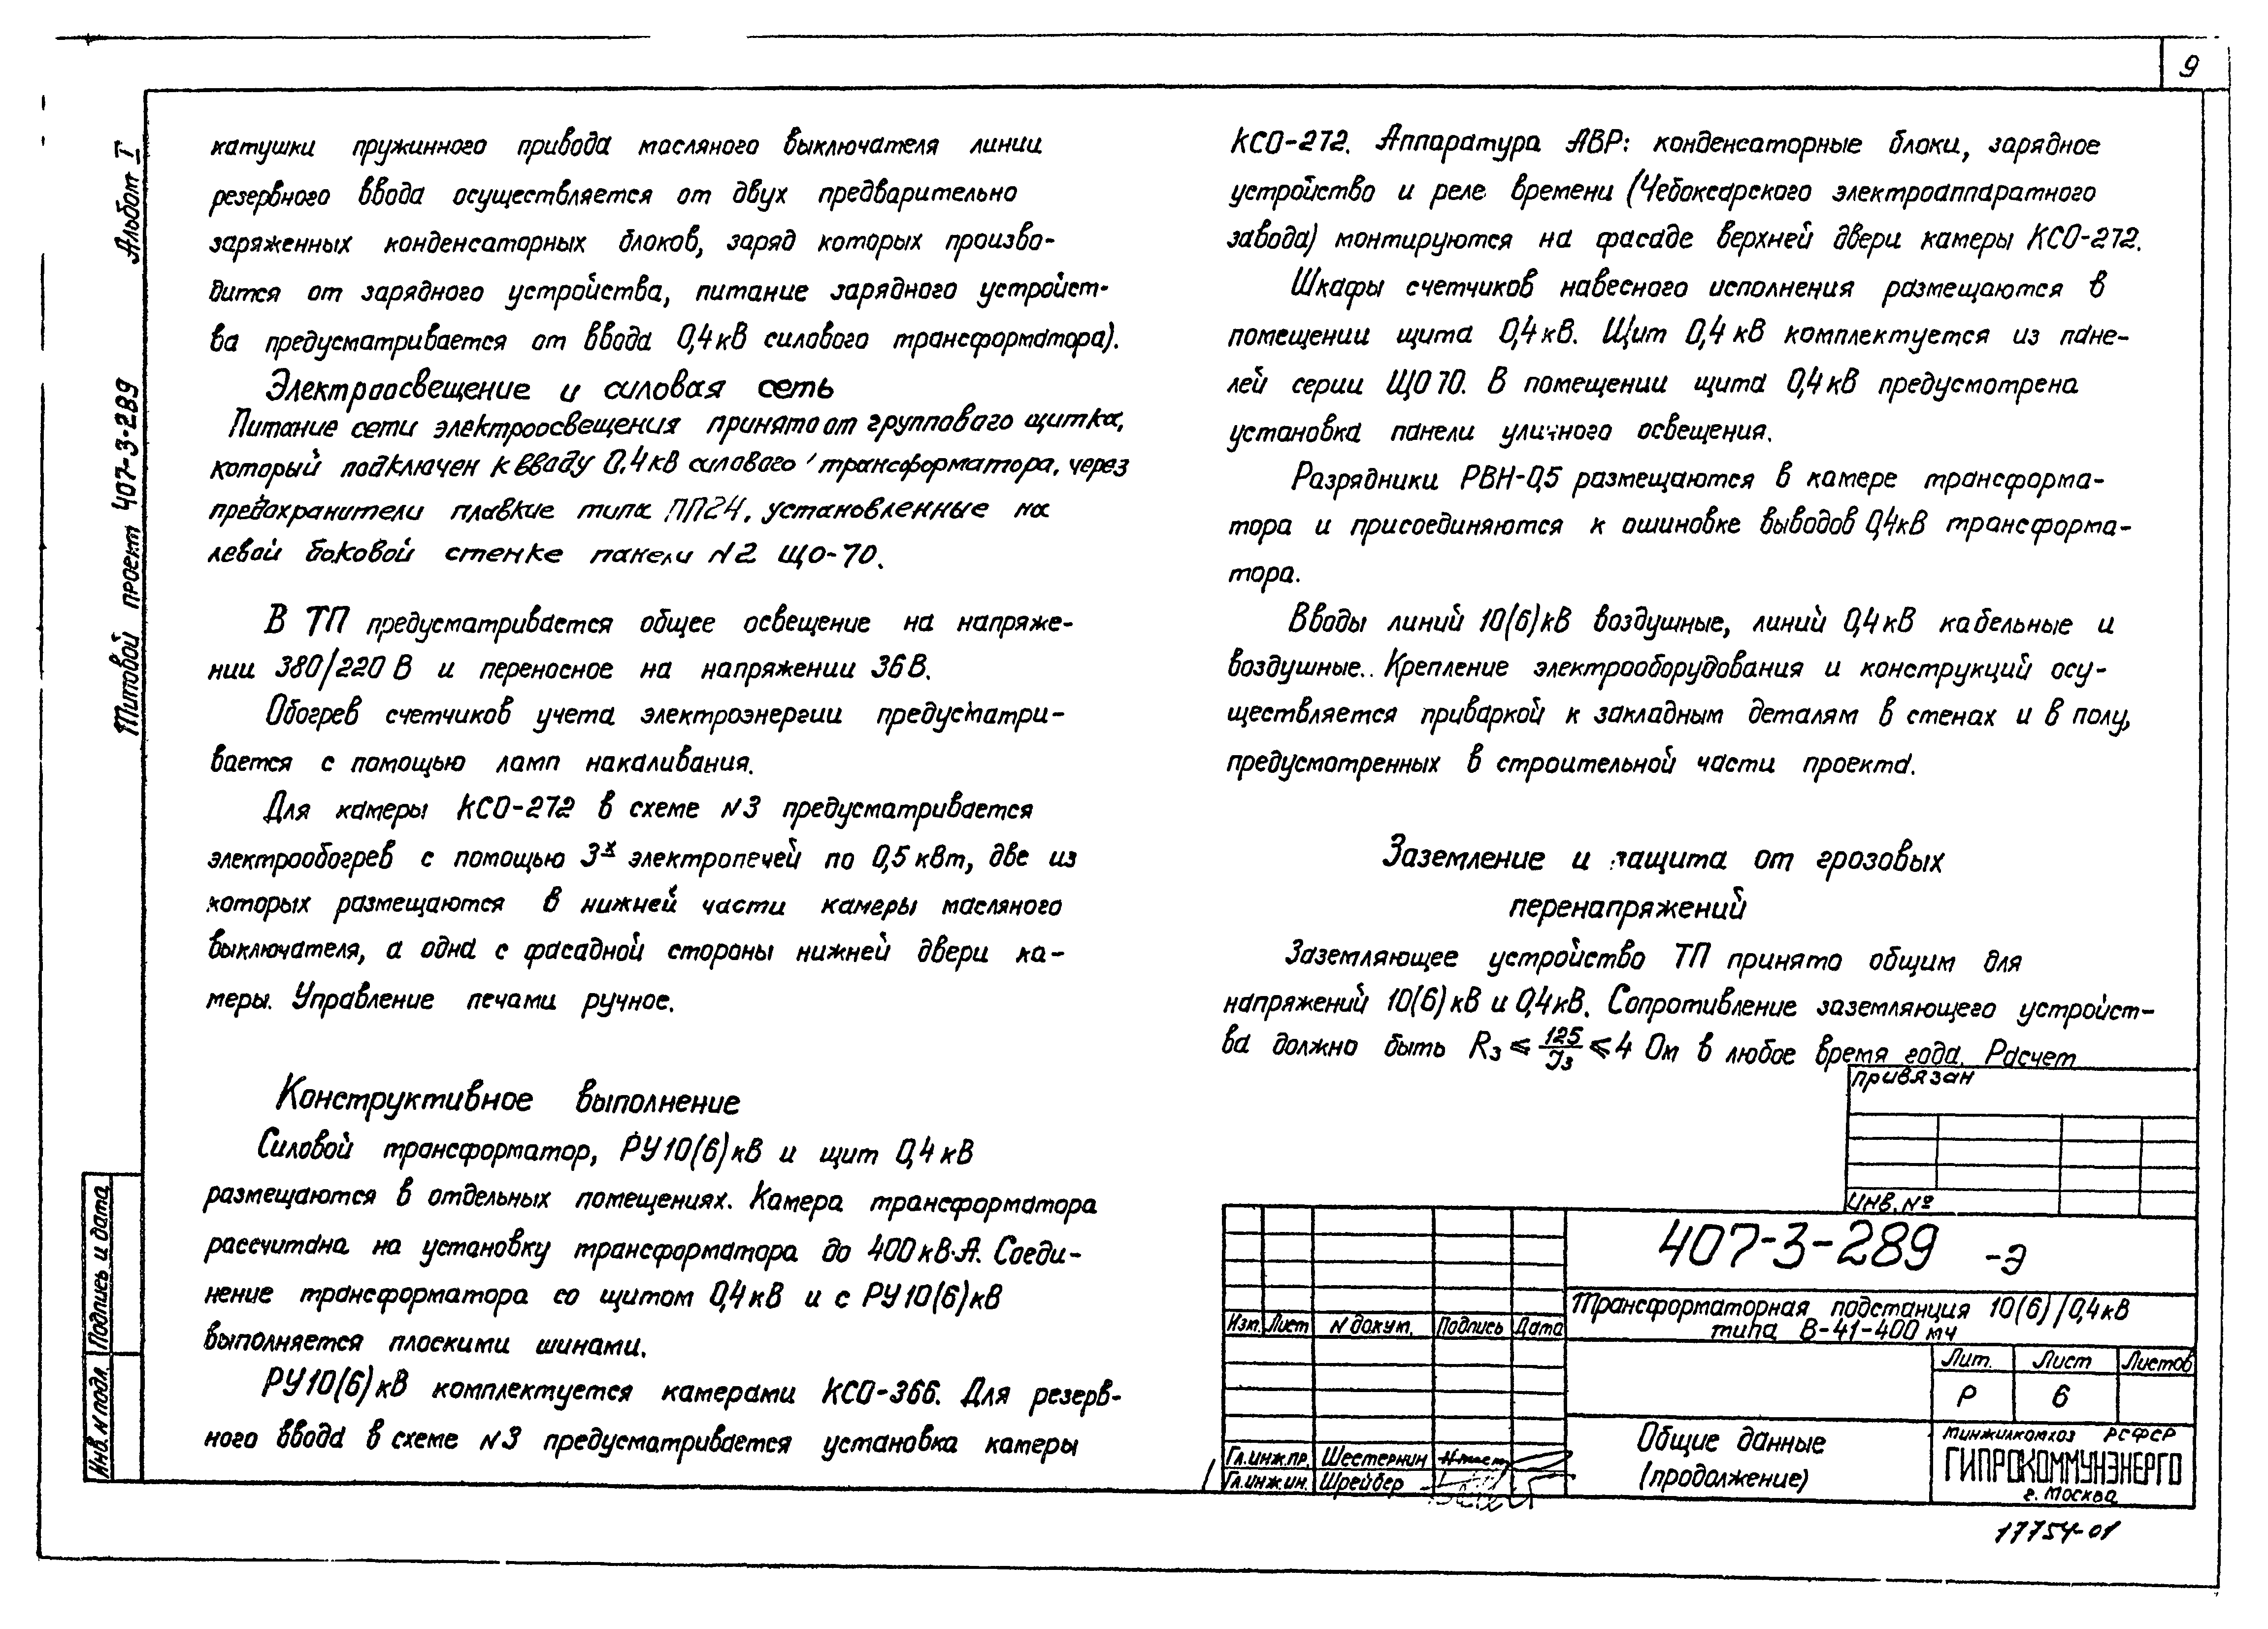 9
Альбом I
Типовой проект 407-3-289
катушки пружинного привода масляного выключателя линии
резервного ввода осуществляется от двух предварительно
заряженных конденсаторных блоков, заряд которых произво-
дится от зарядного устройства, питание зарядного устройст-
ва предусматривается от ввода 0,4 кВ силового трансформатора).
Электроосвещение и силовая сеть
Питание сети электроосвещения принято от группового щитка,
который подключен к вводу 0,4 кВ силового трансформатора, через
предохранители плавкие типа ПП24, установленные на
левой боковой стенке панели N2 ЩО-70.
В ТП предусматривается общее освещение на напряже-
нии 380/220 В и переносное на напряжении 36 В.
Обогрев счетчиков учета электроэнергии предусматри-
вается с помощью ламп накаливания.
Для камеры КСО-272 в схеме N3 предусматривается
электрообогрев с помощью 3х электропечей по 0,5 кВт, две из
которых размещаются в нижней части камеры масляного
выключателя, а одна с фасадной стороны нижней двери ка-
меры. Управление печами ручное.
Конструктивное выполнение
Силовой трансформатор, РУ 10(6) кВ и щит 0,4 кВ
размещаются в отдельных помещениях. Камера трансформатора
рассчитана на установку трансформатора до 400 кВ·А. Соеди-
нение трансформатора со щитом 0,4 кВ и с РУ 10(6) кВ
выполняется плоскими шинами.
РУ 10(6) кВ комплектуется камерами КСО-366. Для резерв-
ного ввода в схеме N3 предусматривается установка камеры
КСО-272. Аппаратура АВР: конденсаторные блоки, зарядное
устройство и реле времени (Чебоксарского электроаппаратного
завода) монтируются на фасаде верхней двери камеры КСО-272.
Шкафы счетчиков навесного исполнения размещаются в
помещении щита 0,4 кВ. Щит 0,4 кВ комплектуется из пане-
лей серии ЩО 70. В помещении щита 0,4 кВ предусмотрена
установка панели уличного освещения.
Разрядники РВН-0,5 размещаются в камере трансформа-
тора и присоединяются к ошиновке выводов 0,4 кВ трансформа-
тора.
Вводы линий 10(6) кВ воздушные, линий 0,4 кВ кабельные и
воздушные.. Крепление электрооборудования и конструкций осу-
ществляется приваркой к закладным деталям в стенах и в полу,
предусмотренных в строительной части проекта.
Заземление и защита от грозовых
перенапряжений
Заземляющее устройство ТП принято общим для
напряжений 10(6) кВ и 0,4 кВ. Сопротивление заземляющего устройст-
ва должно быть Rз ⩽ 125/Jз ⩽ 4 Ом в любое время года. Расчет
Привязан
Инв. №
407-3-289 -Э
Трансформаторная подстанция 10(6)/0,4 кВ
типа В-41-400 мч
Изм. Лист N докум. Подпись Дата
Лит. Лист Листов
Р 6
Общие данные
(продолжение)
Минжилкомхоз РСФСР
ГИПРОКОММУНЭНЕРГО
г. Москва
Гл.инж.пр. Шестернин
Гл.инж.ин. Шрейбер
Подпись и дата
Инв. N подл.
17754-01